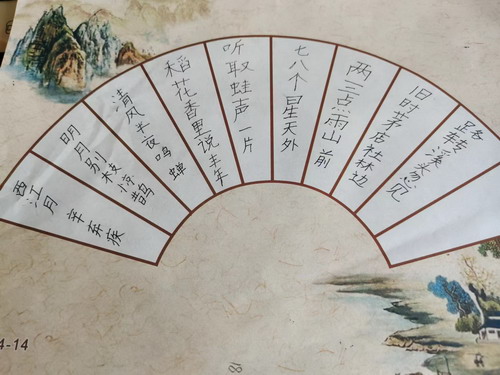 西江月 辛弃疾
明月别枝惊鹊
清风半夜鸣蝉
稻花香里说丰年
听取蛙声一片
七八个星天外
两三点雨山前
旧时茅店社林边
路转溪头忽见
4-14